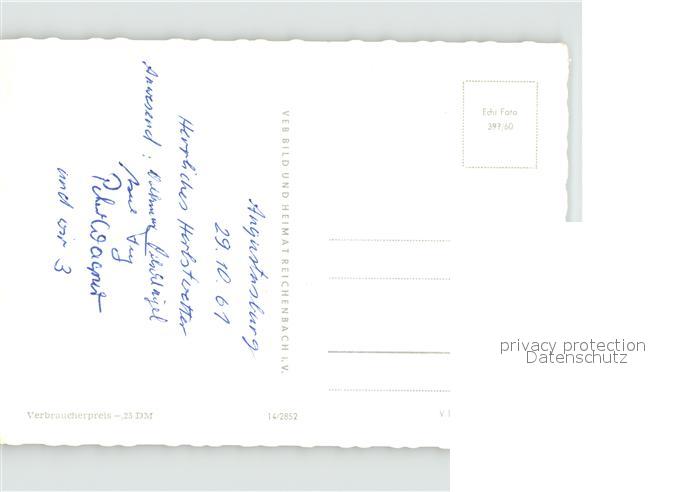 Augustusburg
29.10.61
Herrliches Herbstwetter
Anwesend :
Peter Wagner
und wir 3
VEB BILD UND HEIMAT REICHENBACH i. V.
Echt Foto
397/60
Verbraucherpreis –,25 DM
14/2852
V
privacy protection
Datenschutz